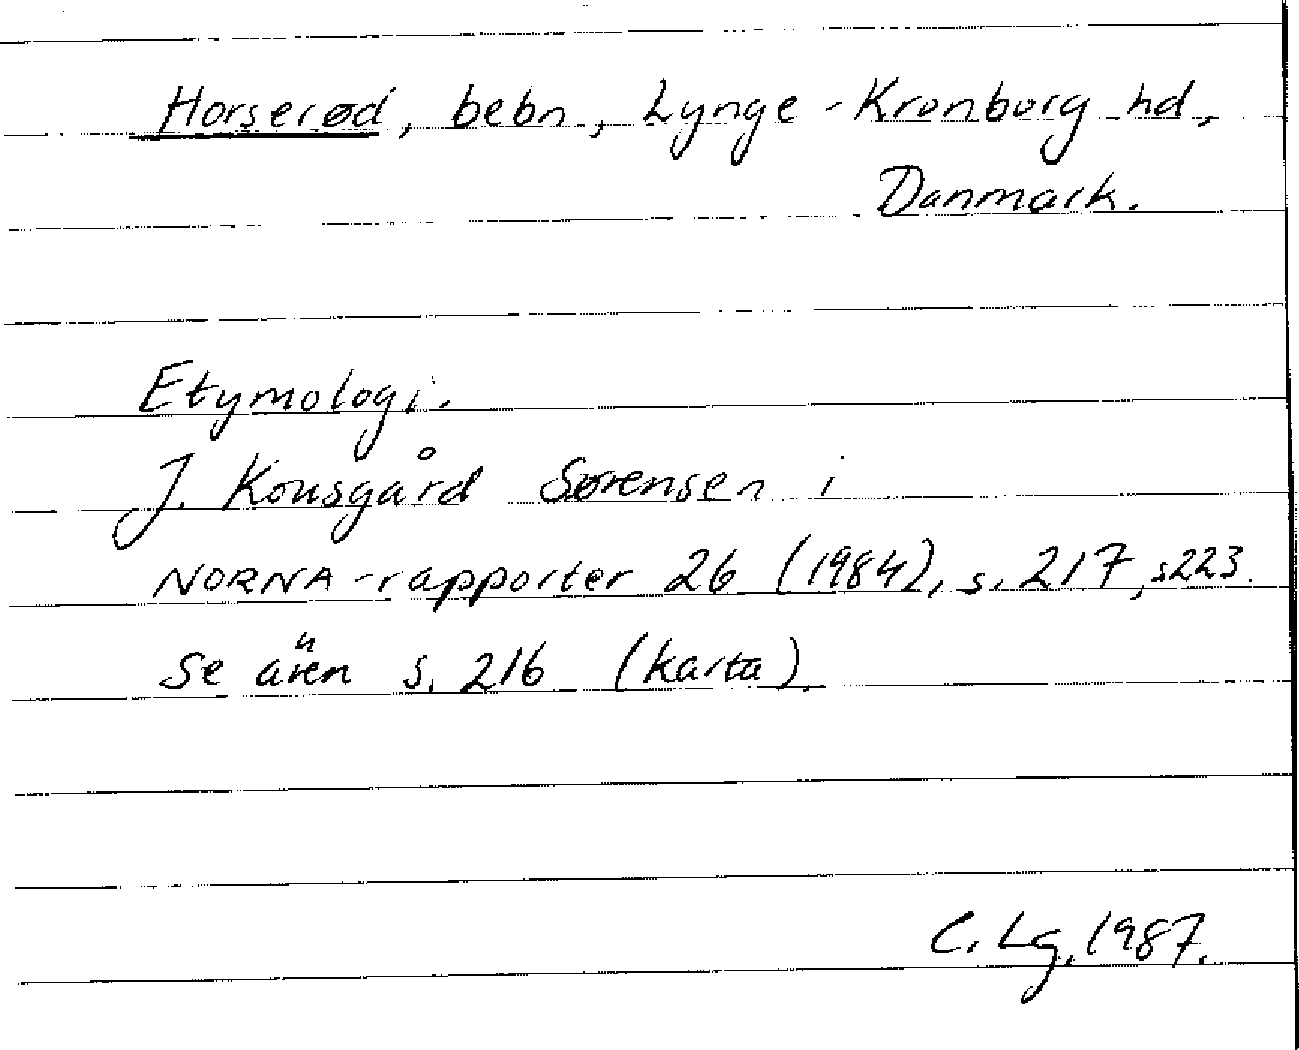 Horserød, bebn, Lynge-Kronborg hd,
Danmark.
Etymologi.
J. Kousgård Sørensen i
NORNA-rapporter 26 (1984), s. 217, s223.
Se även s. 216 (karta).
C. Lg, 1987.